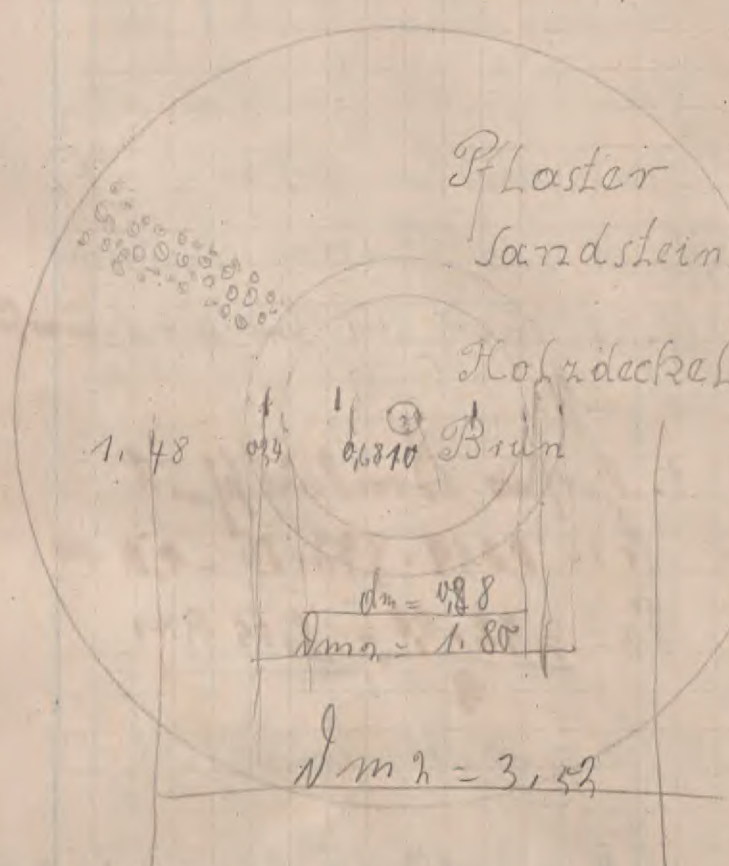 Pflaster
Sandstein
Holzdeckel
1.48 0,6810 Brun
dm =
Dm2 = 1.80
Dm2 = 3,52